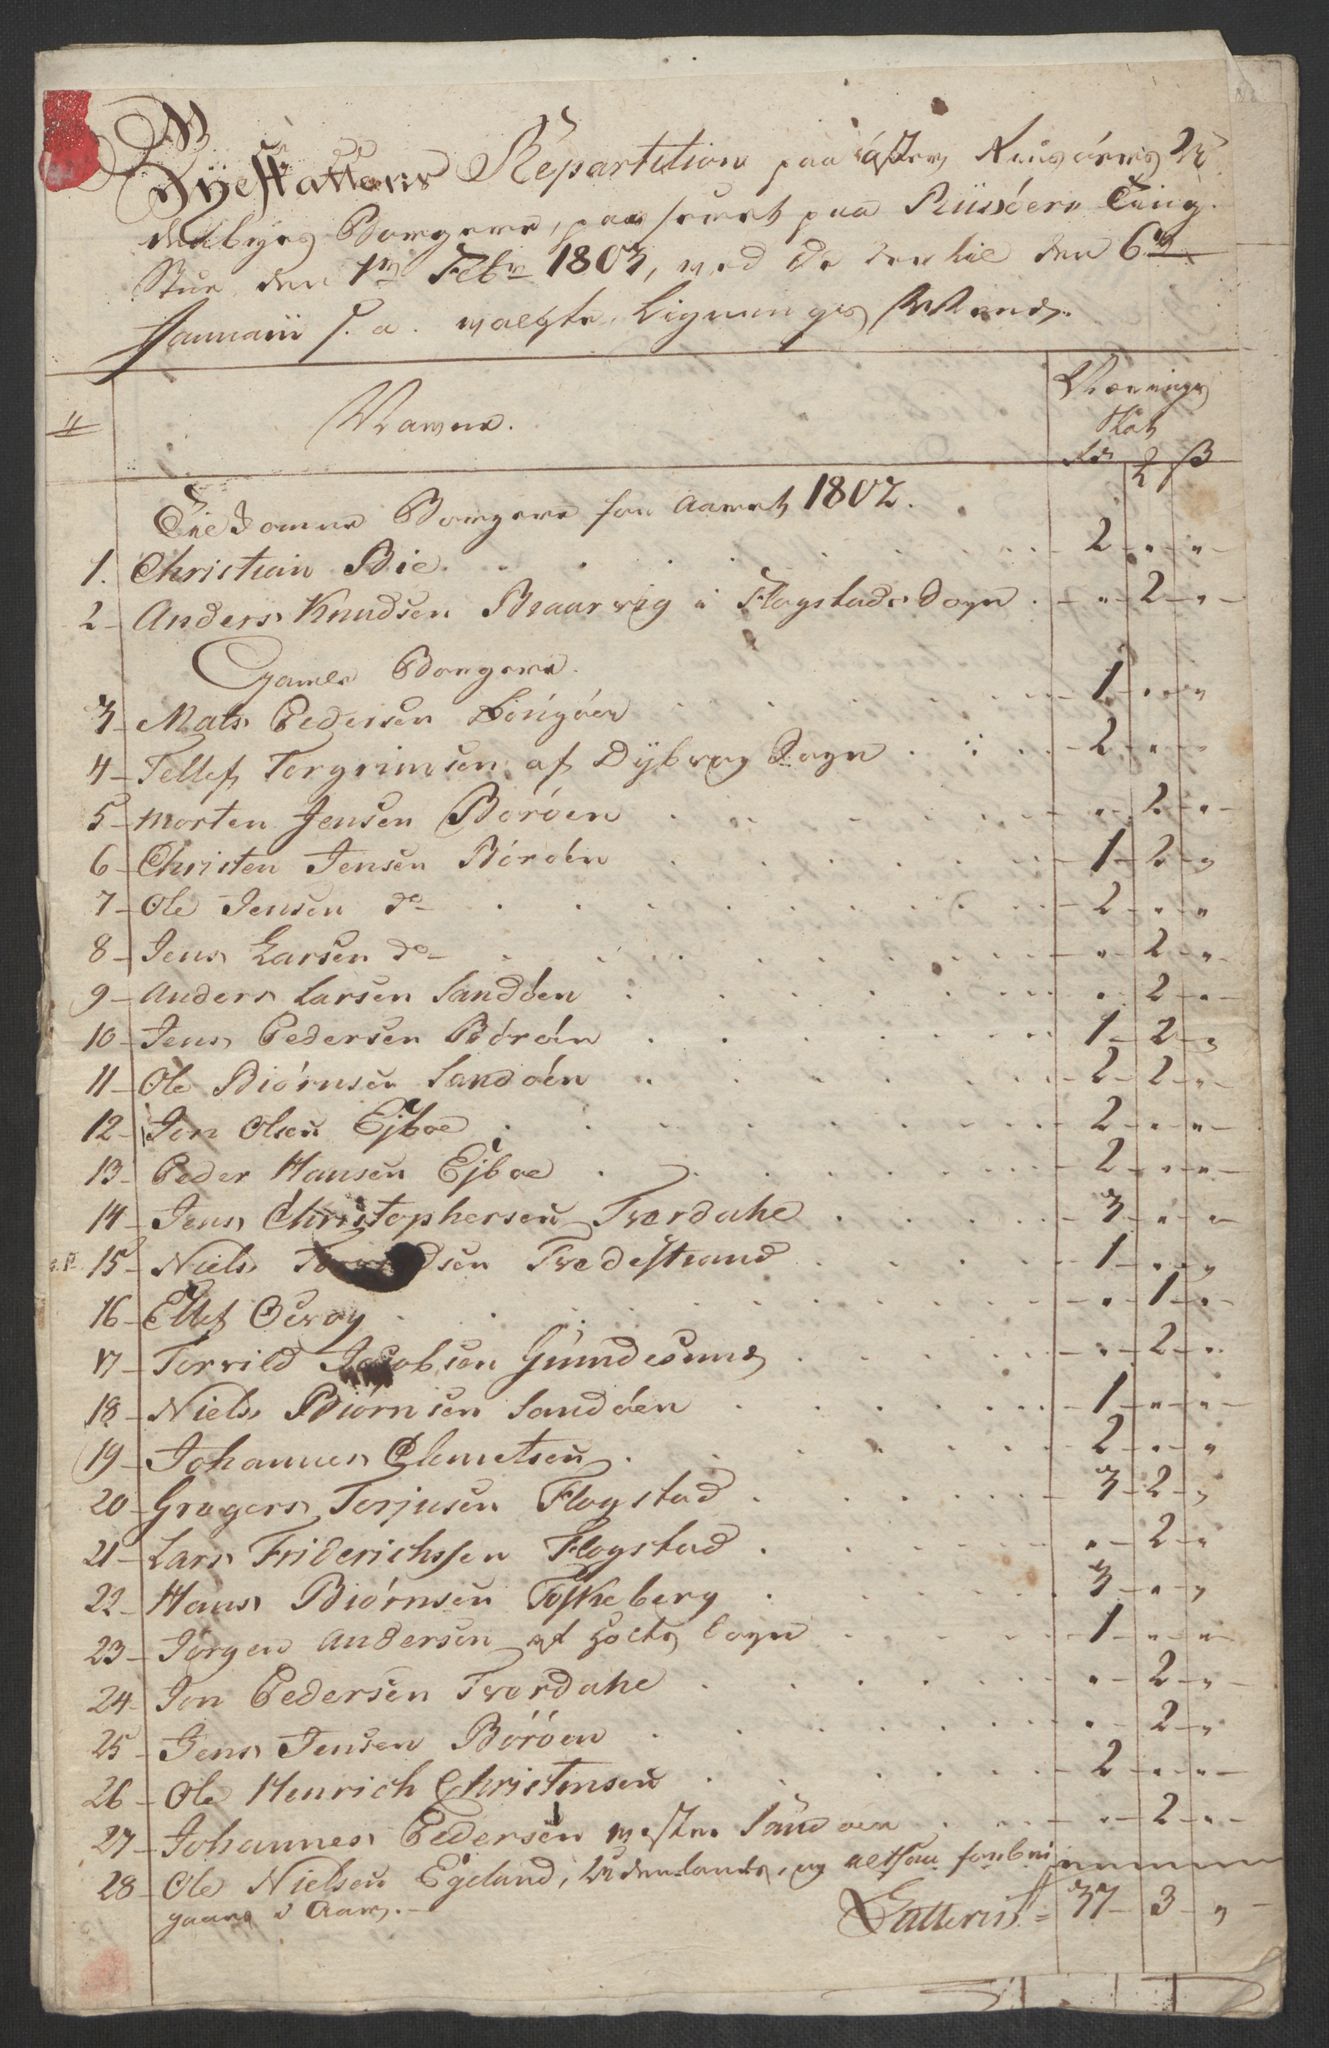 Byeskattens Repartition paa øster Riisøers
udebyes Borgere, passeret paa Riisøers Ting
Stue den 1te Febr 1803, ved de dertil den 6te
Januarii s. a. valgte Lignings Mænd.
# Navne. Nærings Skat
Rd ß
Tilkomne Borgere for Aaret 1802.
1. Christian Bie 2 - " - "
2 - Anders Knudsen Braarvig i Flagstads Sogn " - 2 - "
Gamle Borgere.
3 - Mats Pedersen Lóngóen 1 - " - "
4 - Tellef Torgrimsen af Dybvag Sogn 2 - " - "
5 - Morten Jensen Borøen " - 2 - "
6 - Christen Jensen Bórøen 1 - 2 - "
7 - Ole Jensen do 2 - " - "
8 - Jens Larsen do " - 2 - "
9 - Anders Larsen Sandøen " - 2 - "
10 - Jens Pedersen Bórøen 1 - 2 - "
11 - Ole Biørnsen Sandøen 2 - 2 - "
12 - Jon Olsen Ejboe 2 - " - "
13 - Peder Hansen Ejboe 2 - " - "
14 - Jens Christophersen Tverdahe 3 - " - "
15 - Niels Tvedestrand 1 - " - "
16 - Ellef Osvog " - 1 - "
17 - Torvild Jacobsen " - 2 - "
18 - Niels Biørnsen Sandøen 1 - " - "
19 - Johannes Clemetsen 2 - " - "
20 - Gregers Torjusen Flogstad 3 - 2 - "
21 - Lars Friderichssen Flogstad " - 2 - "
22 - Hans Biørnsen Foskeberg 3 - " - "
23 - Jørgen Andersen af Holts Sogn 1 - " - "
24 - Jon Pedersen Tverdahe " - 2 - "
25 - Jens Jensen Bórøen " - 2 - "
26 - Ole Henrich Christensen 2 - " - "
27 - Johannes Pedersen vestre Sandøen " - 2 - "
28 - Ole Nielsen Egeland, Udenlands, og altsaa forbi
gaaes i Aar. - Latteris = 37 - 3 - "